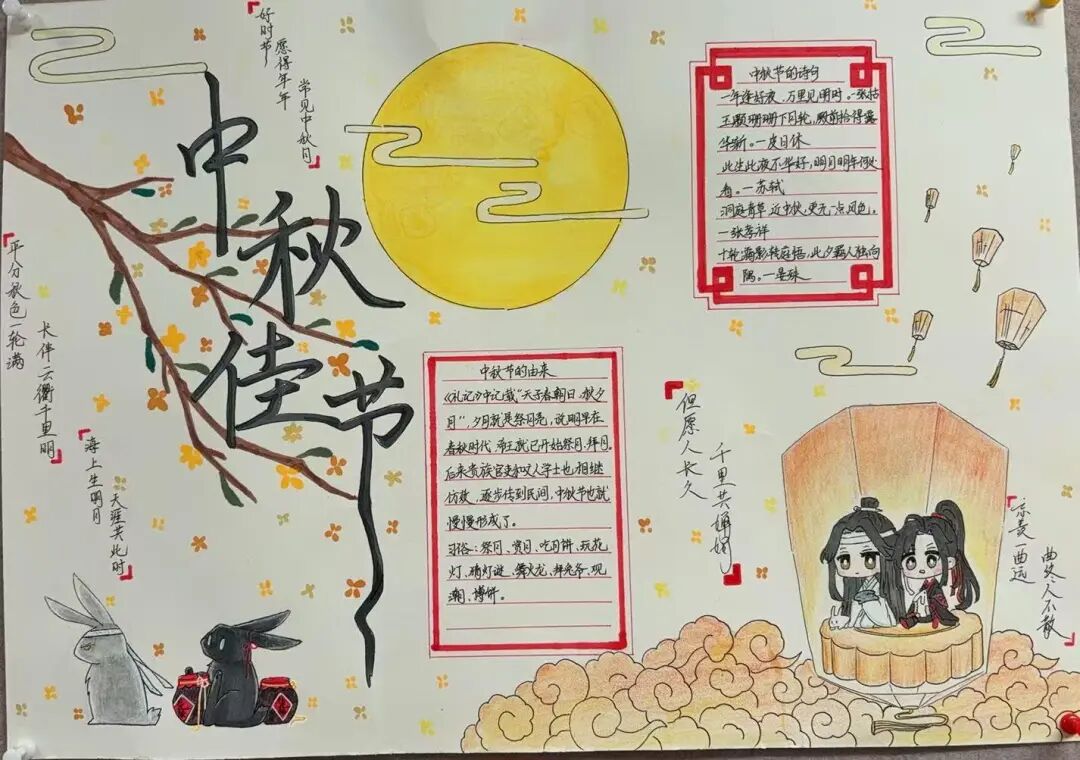 好时节
愿得年年
常见中秋月
中秋佳节
平分秋色一轮满
长伴云衢千里明
海上生明月
天涯共此时
中秋节的诗句
一年逢好夜,万里见明时。一张祜
玉颗珊珊下月轮,殿前拾得露
华新。一皮日休
此生此夜不长好,明月明年何处
看。一苏轼
洞庭青草,近中秋,更无一点风色。
一张孝祥
十轮霜影转庭梧,此夕羁人独向
隅。一晏殊
中秋节的由来
《礼记》中记载“天子春朝日,秋夕
月”,夕月就是祭月亮,说明早在
春秋时代,帝王就已开始祭月、拜月。
后来贵族官吏和文人学士也相继
仿效,逐步传到民间,中秋节也就
慢慢形成了。
习俗:祭月、赏月、吃月饼、玩花
灯、猜灯谜、舞火龙、拜兔爷、观
潮、博饼。
但愿人长久
千里共婵娟
一曲远
曲终人不散